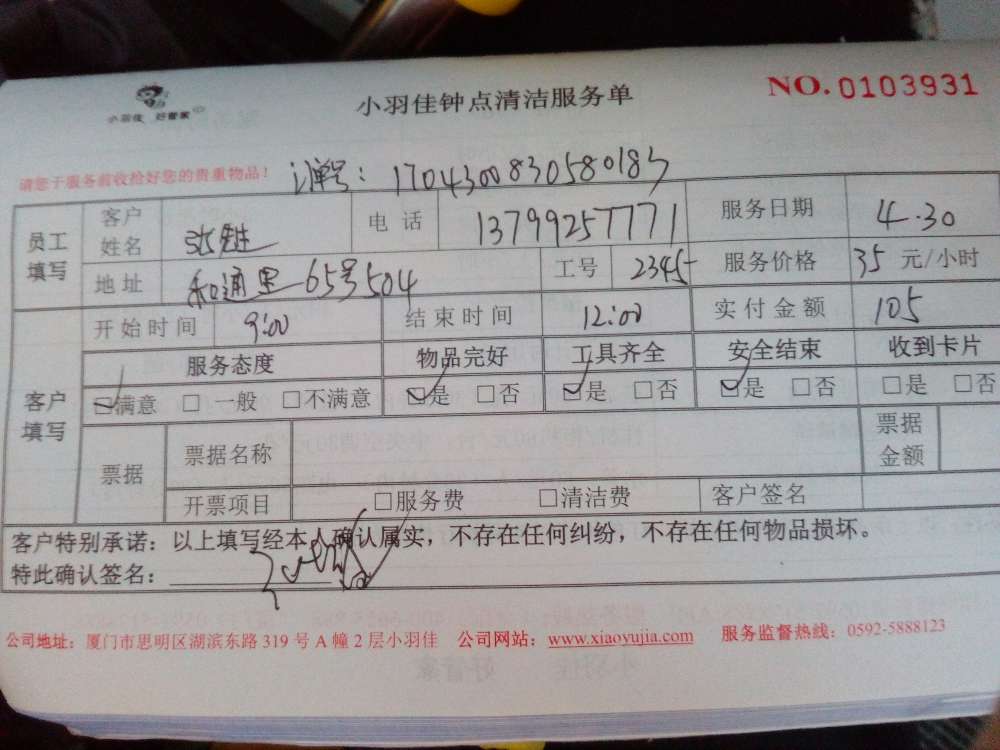 小羽佳 好管家
小羽佳钟点清洁服务单
NO.0103931
请您于服务前收拾好您的贵重物品！ 订单号：1704300830580183
员工填写 客户姓名 张 电话 13799257771 服务日期 4.30
地址 和通里65号504 工号 2345 服务价格 35 元/小时
客户填写 开始时间 9:00 结束时间 12:00 实付金额 105
服务态度 物品完好 工具齐全 安全结束 收到卡片
☑满意 □一般 □不满意 ☑是 □否 ☑是 □否 ☑是 □否 □是 □否
票据 票据名称 票据金额
开票项目 □服务费 □清洁费 客户签名
客户特别承诺：以上填写经本人确认属实，不存在任何纠纷，不存在任何物品损坏。
特此确认签名：
公司地址：厦门市思明区湖滨东路 319 号 A 幢 2 层小羽佳 公司网站：www.xiaoyujia.com 服务监督热线：0592-5888123